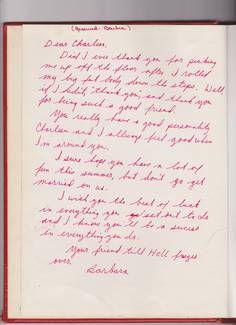 Dear Charleen,
Did I ever thank you for picking
me up off the floor after I rolled
my big fat body down the steps. Well
if I didn't, "thank you," and thank you
for being such a good friend.
You really have a good personality
Charleen and I allways feel good when
I'm around you.
I sure hope you have a lot of
fun this summer but don't go get
married on us.
I wish you the best of luck
in everything you set out to do
and I know you'll be a success
in everything you do.
Your friend till Hell frezes
over.
Barbara